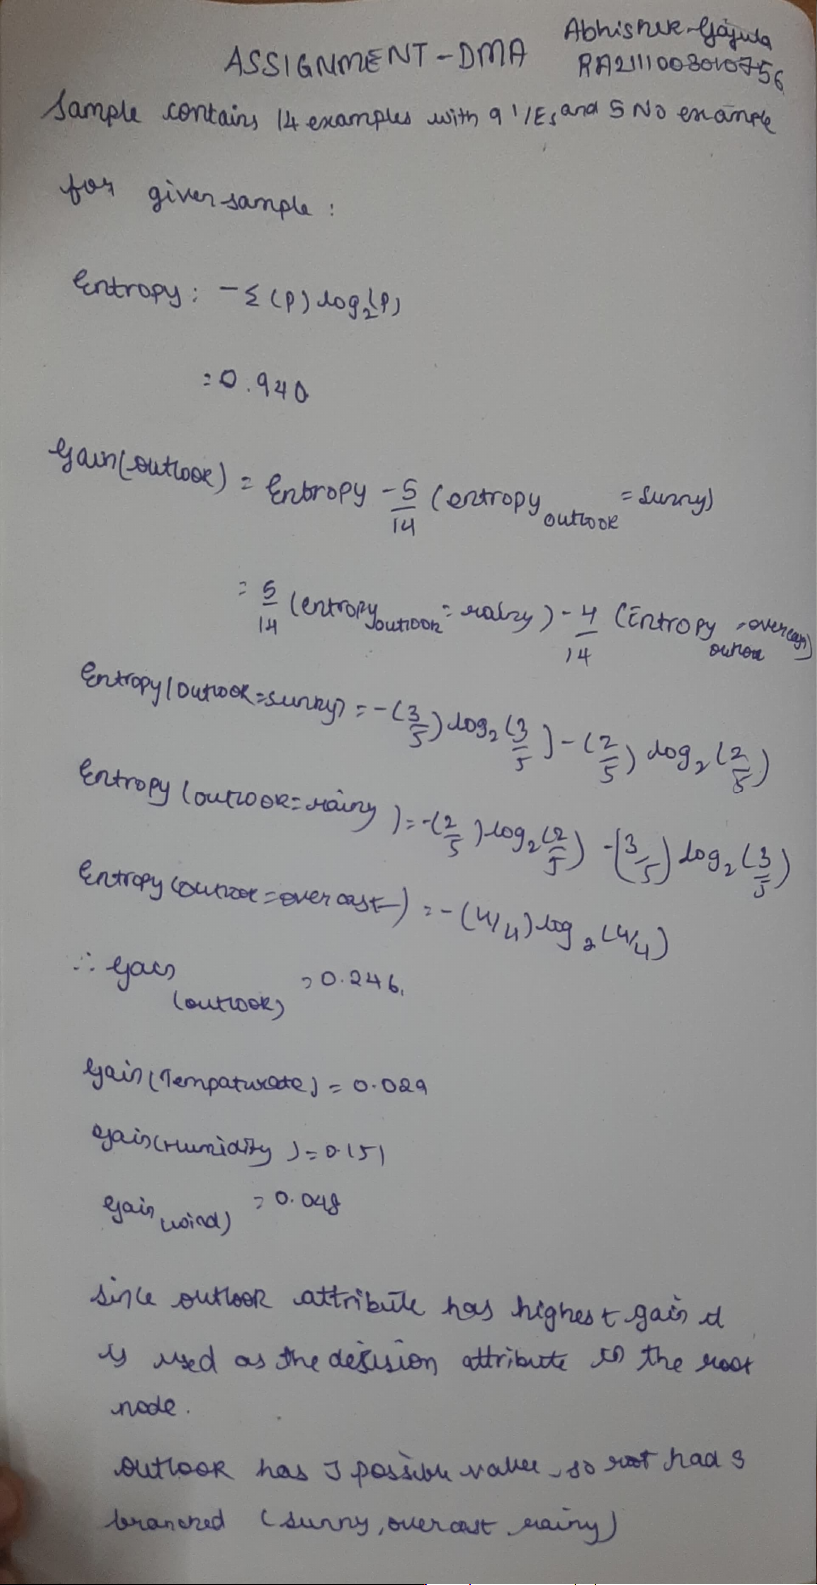 ASSIGNMENT-DMA
Abhishek-Gajula
RA2111003010756
Sample contains 14 examples with 9 YEs and 5 NO example
for given sample :
Entropy : -Σ (P) log₂(P)
= 0.940
Gain(outlook) = Entropy - 5/14 (entropy outlook = sunny)
= 5/14 (entropy outlook = rainy) - 4/14 (Entropy outlook = overcast)
Entropy (outlook = sunny) = -(3/5) log₂(3/5) - (2/5) log₂(2/5)
Entropy (outlook = rainy) = -(2/5) log₂(2/5) - (3/5) log₂(3/5)
Entropy (outlook = overcast) = -(4/4) log₂(4/4)
∴ Gain (outlook) = 0.246,
Gain (Tempaturate) = 0.029
Gain (Humidity) = 0.151
Gain (wind) = 0.048
since outlook attribute has highest gain it
is used as the decision attribute in the root
node.
outlook has 3 possible value, so root had 3
branched (sunny, overcast, rainy)